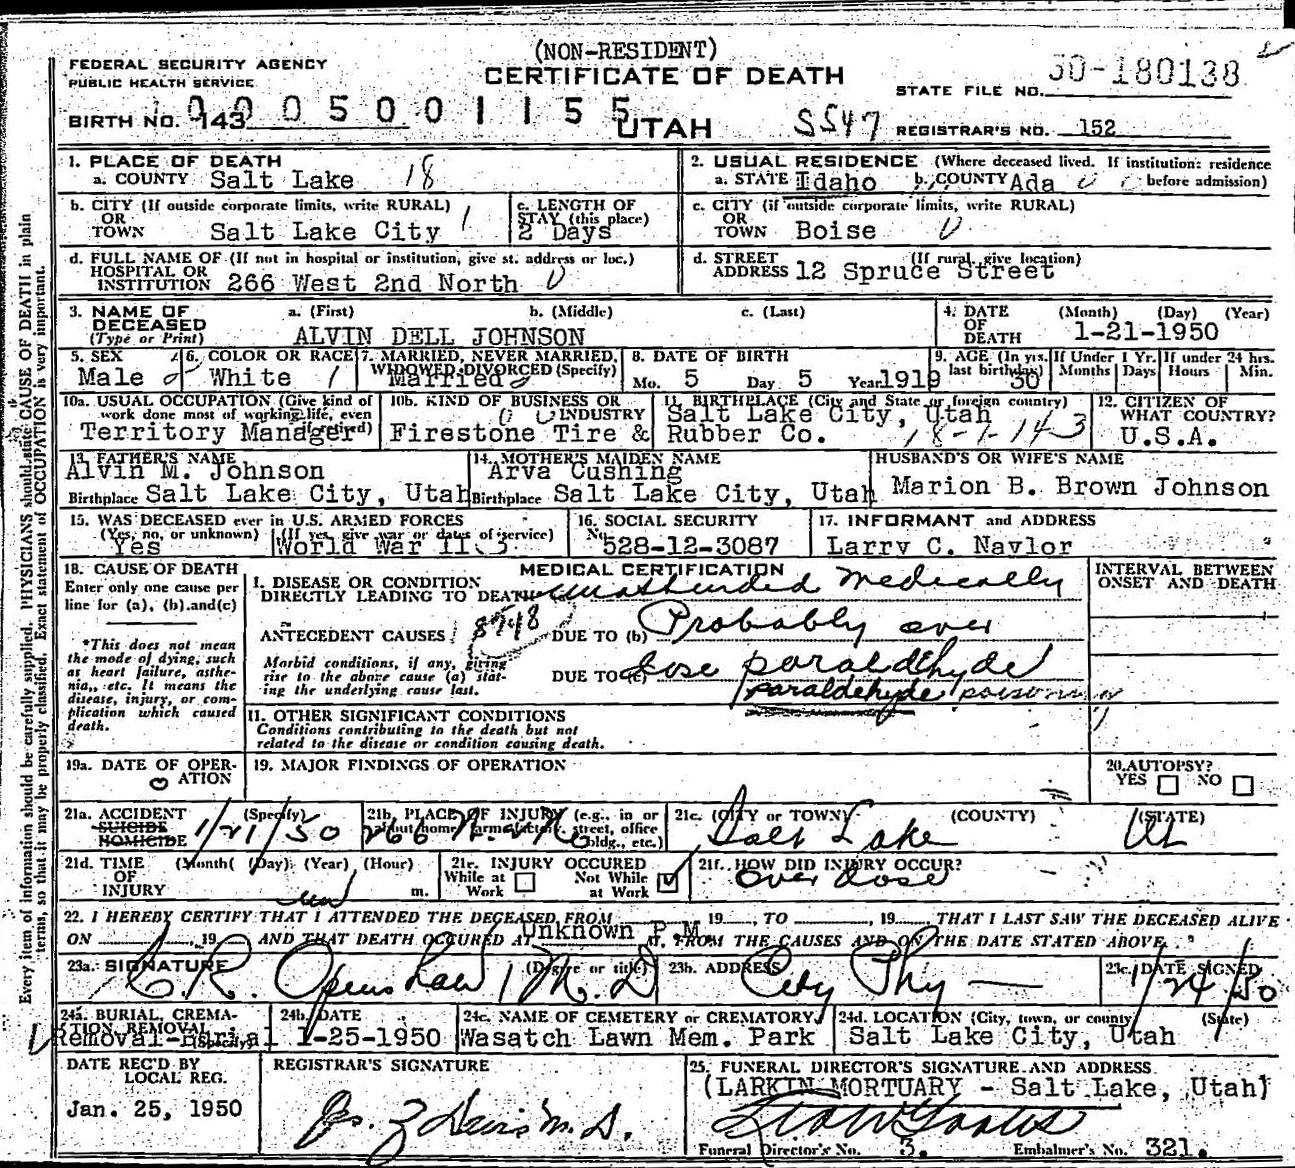 (NON-RESIDENT)
FEDERAL SECURITY AGENCY
PUBLIC HEALTH SERVICE
CERTIFICATE OF DEATH
STATE FILE NO. 50-180138
BIRTH NO. 143
0005001155
UTAH
SS47
REGISTRAR'S NO. 152
1. PLACE OF DEATH
a. COUNTY Salt Lake 18
2. USUAL RESIDENCE (Where deceased lived. If institution: residence before admission)
a. STATE Idaho b. COUNTY Ada
b. CITY (If outside corporate limits, write RURAL)
OR TOWN Salt Lake City
c. LENGTH OF STAY (this place)
2 Days
c. CITY (if outside corporate limits, write RURAL)
OR TOWN Boise
d. FULL NAME OF (If not in hospital or institution, give st. address or loc.)
HOSPITAL OR INSTITUTION 266 West 2nd North
d. STREET ADDRESS (If rural, give location)
12 Spruce Street
3. NAME OF DECEASED (Type or Print)
a. (First) b. (Middle) c. (Last)
ALVIN DELL JOHNSON
4. DATE OF DEATH (Month) (Day) (Year)
1-21-1950
5. SEX
Male
6. COLOR OR RACE
White
7. MARRIED, NEVER MARRIED, WIDOWED, DIVORCED (Specify)
Married
8. DATE OF BIRTH
Mo. 5 Day 5 Year 1919
9. AGE (In yrs. last birthday) 30
If Under 1 Yr. Months Days
If under 24 hrs. Hours Min.
10a. USUAL OCCUPATION (Give kind of work done most of working life, even if retired)
Territory Manager
10b. KIND OF BUSINESS OR INDUSTRY
Firestone Tire & Rubber Co.
11. BIRTHPLACE (City and State or foreign country)
Salt Lake City, Utah
18-1-143
12. CITIZEN OF WHAT COUNTRY?
U.S.A.
13. FATHER'S NAME
Alvin M. Johnson
Birthplace Salt Lake City, Utah
14. MOTHER'S MAIDEN NAME
Arva Cushing
Birthplace Salt Lake City, Utah
HUSBAND'S OR WIFE'S NAME
Marion B. Brown Johnson
15. WAS DECEASED ever in U.S. ARMED FORCES
(Yes, no, or unknown) (If yes, give war or dates of service)
Yes World War II
16. SOCIAL SECURITY No.
528-12-3087
17. INFORMANT and ADDRESS
Larry C. Naylor
18. CAUSE OF DEATH
Enter only one cause per line for (a), (b) and (c)
*This does not mean the mode of dying, such as heart failure, asthenia, etc. It means the disease, injury, or complication which caused death.
MEDICAL CERTIFICATION
INTERVAL BETWEEN ONSET AND DEATH
I. DISEASE OR CONDITION DIRECTLY LEADING TO DEATH unattended medically
ANTECEDENT CAUSES
DUE TO (b) Probably over
Morbid conditions, if any, giving rise to the above cause (a) stating the underlying cause last.
DUE TO (c) dose paraldehyde
paraldehyde poisoning
11. OTHER SIGNIFICANT CONDITIONS
Conditions contributing to the death but not related to the disease or condition causing death.
19a. DATE OF OPERATION
19. MAJOR FINDINGS OF OPERATION
20. AUTOPSY?
YES NO
21a. ACCIDENT SUICIDE HOMICIDE (Specify)
1/21/50
21b. PLACE OF INJURY (e.g., in or about home, farm, factory, street, office bldg., etc.)
266 W. 2 No
21c. (CITY or TOWN) (COUNTY) (STATE)
Salt Lake Ut
21d. TIME OF INJURY (Month) (Day) (Year) (Hour) m.
21e. INJURY OCCURED
While at Work Not While at Work
21f. HOW DID INJURY OCCUR?
over dose
22. I HEREBY CERTIFY THAT I ATTENDED THE DECEASED FROM 19 , TO 19 , THAT I LAST SAW THE DECEASED ALIVE
ON , 19 AND THAT DEATH OCCURED AT Unknown P.M. FROM THE CAUSES AND ON THE DATE STATED ABOVE.
23a. SIGNATURE (Degree or title)
C.R. Openshaw M.D
23b. ADDRESS
City Phy
23c. DATE SIGNED
1/24/50
24a. BURIAL, CREMATION, REMOVAL (Specify)
Removal-Burial
24b. DATE
1-25-1950
24c. NAME OF CEMETERY or CREMATORY
Wasatch Lawn Mem. Park
24d. LOCATION (City, town, or county) (State)
Salt Lake City, Utah
DATE REC'D BY LOCAL REG.
Jan. 25, 1950
REGISTRAR'S SIGNATURE
25. FUNERAL DIRECTOR'S SIGNATURE AND ADDRESS
(LARKIN MORTUARY - Salt Lake, Utah)
Funeral Director's No. 3. Embalmer's No. 321.
Every item of information should be carefully supplied. PHYSICIANS should state CAUSE OF DEATH in plain
terms, so that it may be properly classified. Exact statement of OCCUPATION is very important.